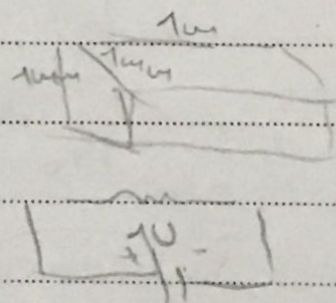 1m
1mm 1mm
1V
+ -